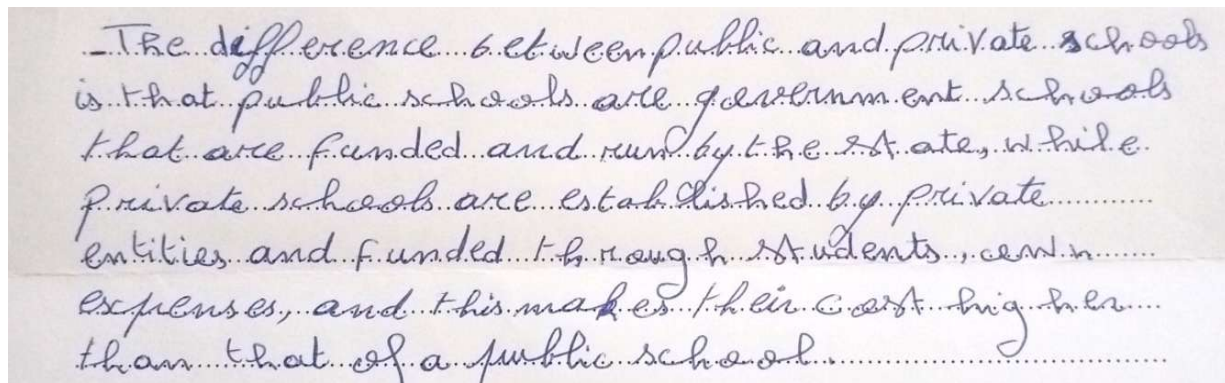 - The difference between public and private schools
is that public schools are government schools
that are funded and run by the state, while
private schools are established by private
entities and funded through students, own
expenses, and this makes their cost higher
than that of a public school.